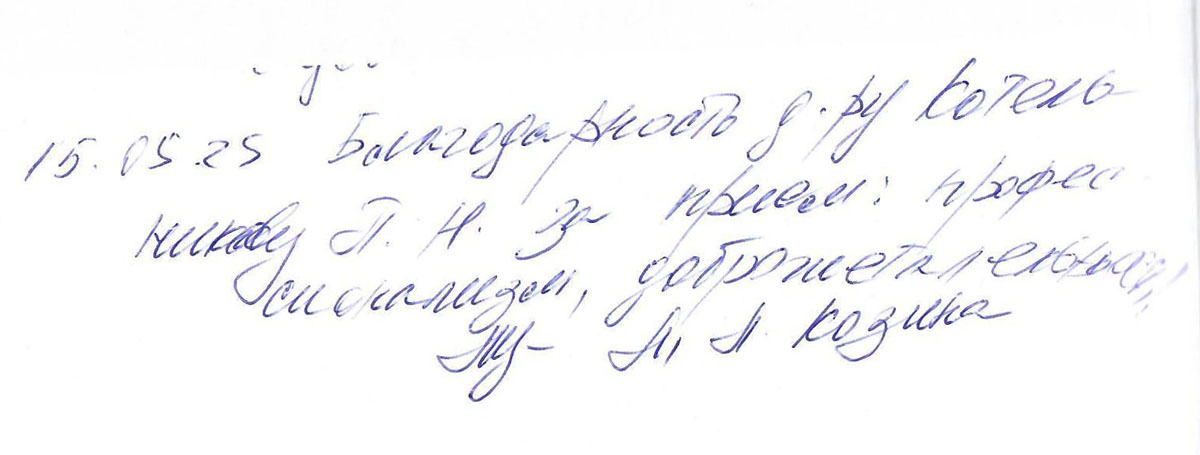 15.05.25 Благодарность д-ру Котель
никову П. Н. За прием: профес
сионализм, доброжетальность!
Козина